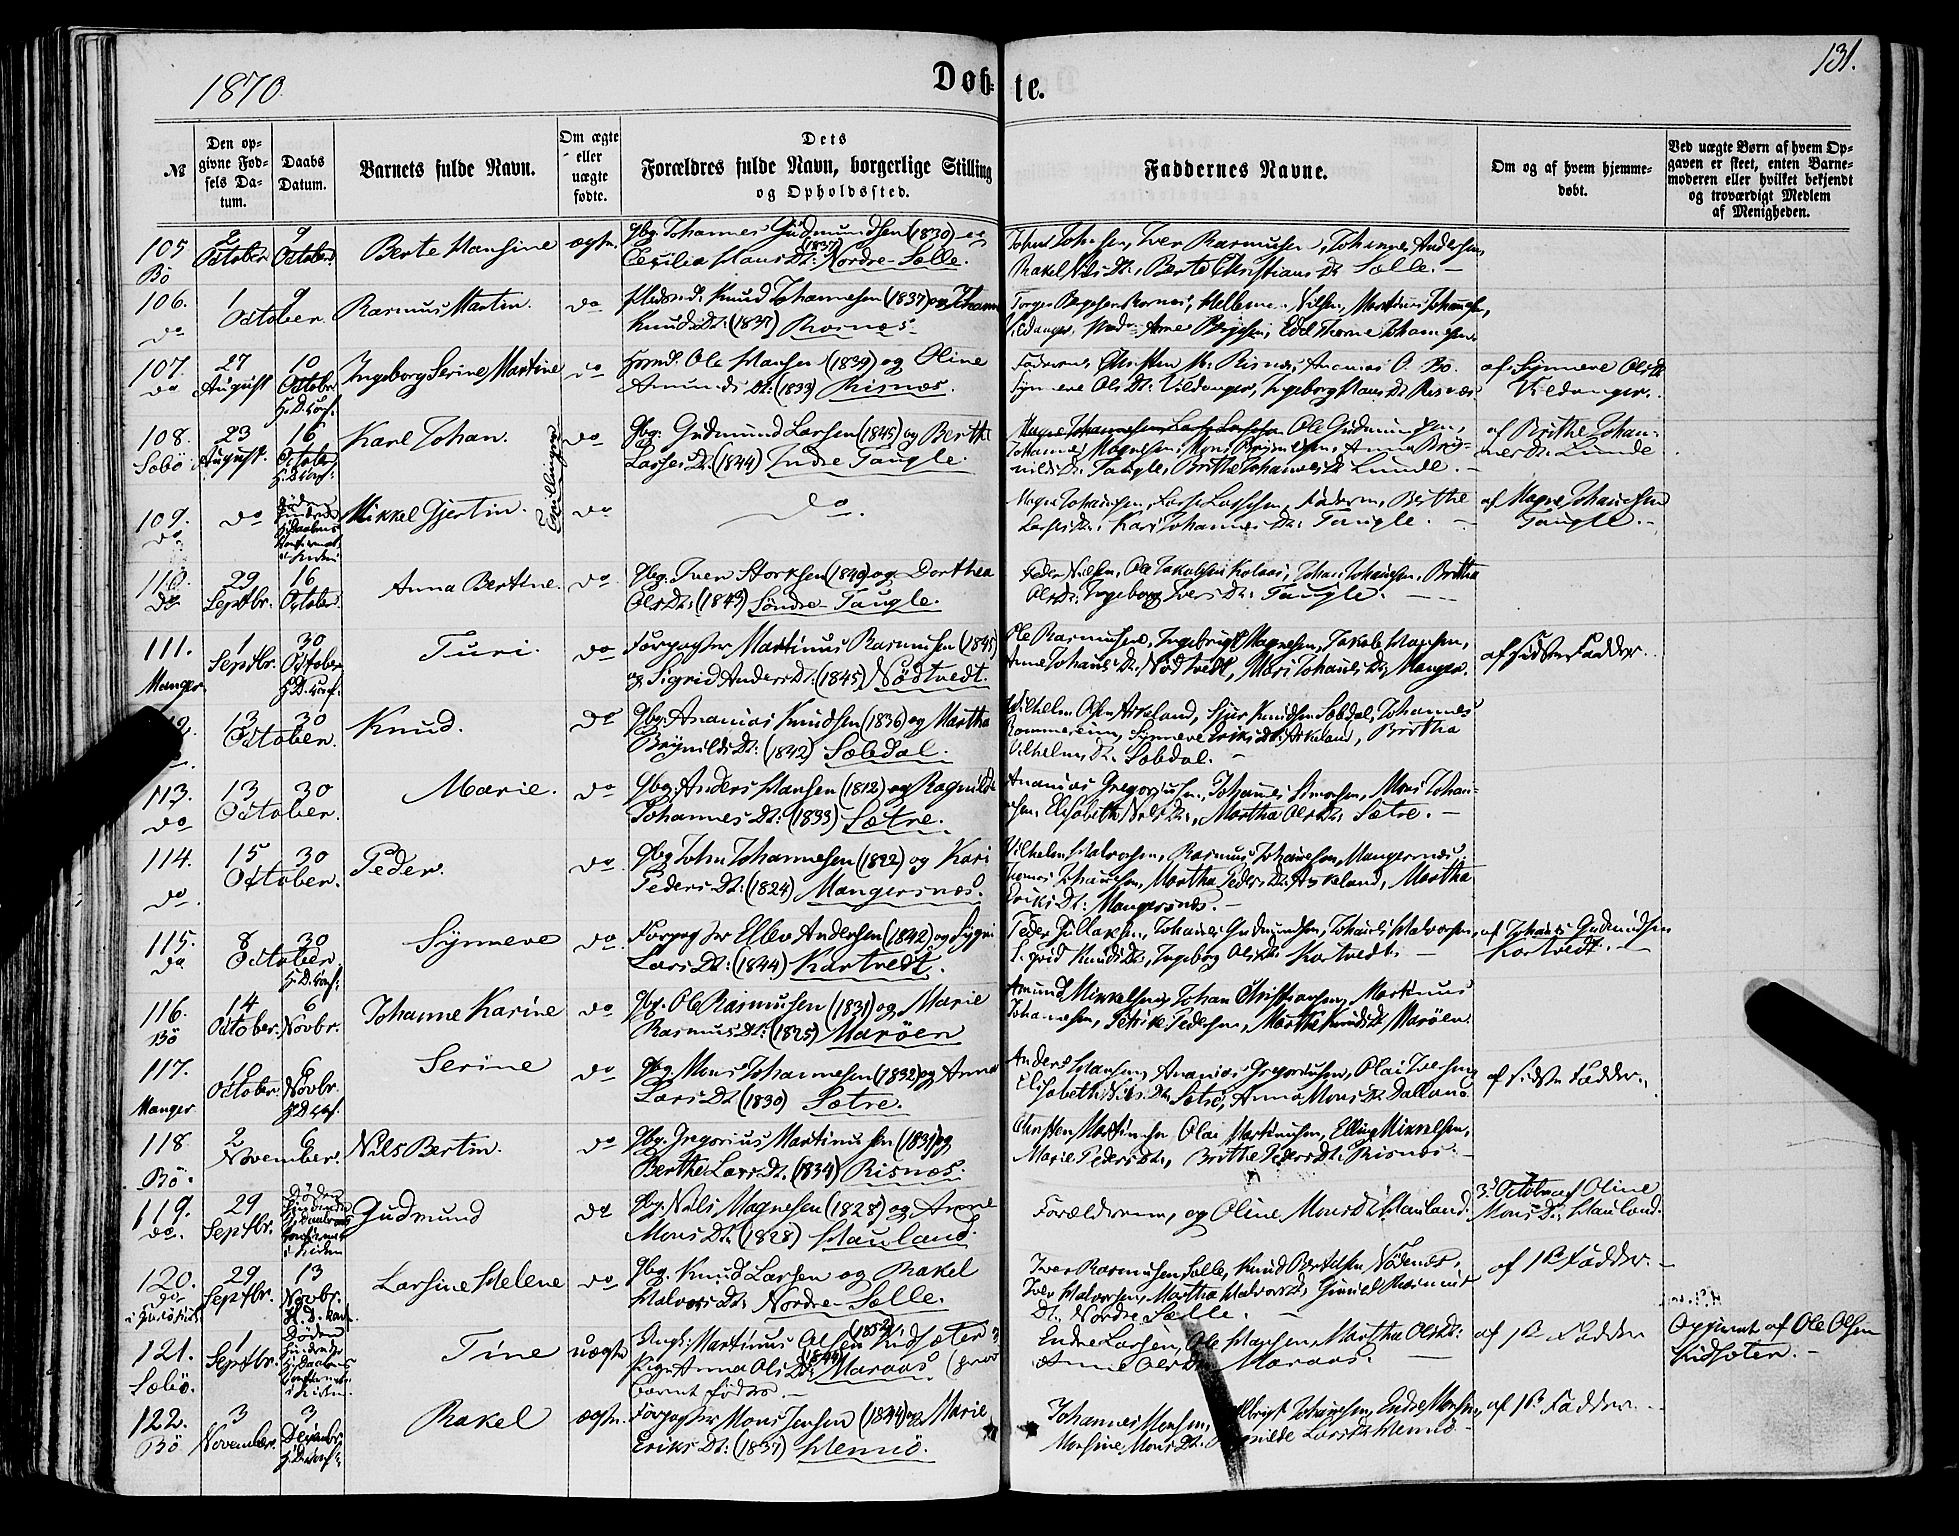 1870.
Døb-
te.
131.
№
Den op-
givne Fød-
sels Da-
tum.
Daabs
Datum.
Barnets fulde Navn.
Om ægte
eller
uægte
fødte.
Dets
Forældres fulde Navn, borgerlige Stilling
og Opholdssted.
Faddernes Navne.
Om og af hvem hjemme-
døbt.
Ved uægte Børn af hvem Op-
gaven er skeet, enten Barne-
moderen eller hvilket bekjendt
og troværdigt Medlem
af Menigheden.
105
Bö
2
October
9
October
Berte Hansine
ægte
Gbr. Johannes Gudmundsen (1830) og
Cecilia Hans Dt: (1837) Nordre Sælle.
Johnsen, Iver Rasmusen, Johannes Andersen,
Rakel Nils Dt., Berte Christians Dt. Sælle. –
106.
do
1
9
October.
Rasmus Martin.
do
Knud Johannesen (1837) og Johanne
Knuds Dt: (1837) Rosnæs.
107.
do
27
August
10
October
H. D. Conf.
Ingeborg Serine Martine
do
Ole Hansen (1839) og Oline
Amunds Dt: (1833) Risnæs.
Faderen, Christen M. Risnæs, Ananias O. Bö.
Synneve Ols Dt: Vildanger, Ingeborg Hans Dt Risnæs
af Synneve Ols Dt
Vildanger.
108.
Sæbö
23
August.
16
October
H. D. Conf.
Karl Johan.
Tvillinger
do
Gbr. Gudmund Larsen (1845) og Berthe
Lasses Dt. (1844) Indre Taugle.
Ole Gudmundsen,
Johannes Magnesen, Mons Brynildsen, Anna Bryn-
nilds Dt. Taugle, Brithe Johannes Dt Lunde. –
af Brithe Johan-
nes Dt. Lunde
109.
do
do
Døden
hindrede
Daabens
Confirmat.
i Kirken
Mikkel Gjertin.
do
do.
Magne Johannesen, Lasse Lassesen, Faderen, Berthe
Lasses Dt., Kari Johannes Dt: Taugle. –
af Magne Johannesen
Taugle. –
110.
do
29
Septbr.
16
October
Anna Bertine.
do
Gbr. Iver Storksen (1840) og Dorthea
Ols Dt: (1843) Søndre Taugle.
Peder Nilsen, Ole Jakobsen Kolaas, Johan Johannesen, Britha
Ols Dt: Ingeborg Ivers Dt: Taugle. –
111.
Manger
1
Septbr.
30
October
H. D. Conf.
Turi.
do
Forpagter Martinus Rasmusen (1845)
og Sigrid Anders Dt. (1845) Nödtvedt.
Ole Rasmusen, Ingebrigt Magnesen, Jakob Hansen,
Anne Johans Dt. Nödtvedt, Mari Johans Dt. Manger.
af sidste Fadder.
13
30
October.
Knud.
do
Gbr. Ananias Knudsen (1836) og Martha
Brynilds Dt: (1842) Sæbdal.
Vilhelm Olsen Askeland, Sjur Knudsen Sæbdal, Johannes
Rommereim, Synneve Eriks Dt: Askeland, Britha
Vilhelms Dt. Sæbdal. –
113.
do
13
30
October.
Marie.
do
Gbr. Anders Hansen (1812) og Ragnilde
Johannes Dt: (1833) Sætre.
Ananias Gregoriusen, Johannes Simonsen, Mons Johan-
sen, Elisabeth Nils Dt., Martha Ols Dt. Sætre. –
114.
do
15
30
October.
Peder.
do
Gbr. John Johannesen (1822) og Kari
Peders Dt: (1824) Mangersnæs.
Vilhelm Halvorsen, Rasmus Johannesen, Mangersnæs,
Johannesen, Martha Peders Dt. Askeland, Martha
Eriks Dt: Mangersnæs. –
115.
do
8
30
October.
H. D. Conf.
Synneve
do
Forpagter Ellev Andersen (1842) og Sygni
Lars Dt: (1844) Kartvedt.
Johannes Gudmundsen, Johannes Halvorsen,
Sigrid Knuds Dt., Ingeborg Ols Dt. Kartvedt. –
af Johannes Gudmundsen
Kartvedt. –
116.
Bö
14
October.
6
Novbr.
Johanne Karine
do
Gbr. Ole Rasmusen (1831) og Marie
Rasmus Dt: (1825) Maröen
Amund Mikkelsen, Johan Christiansen, Martinus
Johannesen, Petrike Pedersen, Marthe Knuds Dt. Maröen.
117.
Manger
October.
6
Novbr.
H. D. Conf.
Serine
do
Gbr. Mons Johannesen (1832) og Anna
Lars Dt (1830) Sætre.
Anders Hansen, Ananias Gregoriusen, Olai Iversen,
Elisabeth Nils Dt. Sætre, Anna Mons Dt Dalland
af sidste Fadder.
118.
Bö.
2
6
November.
Nils Bertin.
do
Gbr. Gregorius Martinusen (1831) og
Berthe Lars Dt. (1834) Risnæs.
Christen Martinusen, Olai Martinusen, Elling Mikkelsen,
Marie Peders Dt., Brithe Peders Dt. Risnæs. –
119.
do.
29
Septbr.
Døden
hindrede
Daabens
Confirmat.
i Kirken
Gudmund
do
Gbr. Nils Magnesen (1828) og Anne
Mons Dt. (1828) Hauland.
Forældrene, og Oline Mons Dt. Hauland.
3. October af Oline
Mons Dt. Hauland.
120.
do
29
Septbr.
13
Novbr.
H. D. Conf.
Larsine Helene
do
Gbr. Knud Larsen og Rakel
Halvors Dt. Nordre Sælle.
Iver Rasmusen Sælle, Knud Bertelsen Födenes,
Iver Halvorsen, Martha Halvors Dt, Gunild Rasmus
Dt. Nordre Sælle. –
af 1ste Fadder. –
121.
Sæbö.
1
Septbr.
Døden
hindrede
Daabens
Confirmation
i Kirken.
Tine
uægte
Ungk. Martinus Olsen (1852) Kidsæter og
Pige Anna Ols Dt. (1849) Maraas.
Barnet födes. –
Endre Larsen, Ole Hansen, Martha Ols Dt:
Anne Ols Dt. Maraas.
af 1ste Fadder
Opgivet af Ole Olsen
Kidsæter. –
122.
Bö
3
November.
3
December
H. D. Conf.
Rakel
ægte.
Forpagter Mons Jensen (1834) og Marie
Eriks Dt: (1837) Hernö.
Johannes Monsen, Johannesen, Endre Monsen,
Monsine Mons Dt. Ragnilde Lars Dt. Hernö –
af 1ste Fadder. –